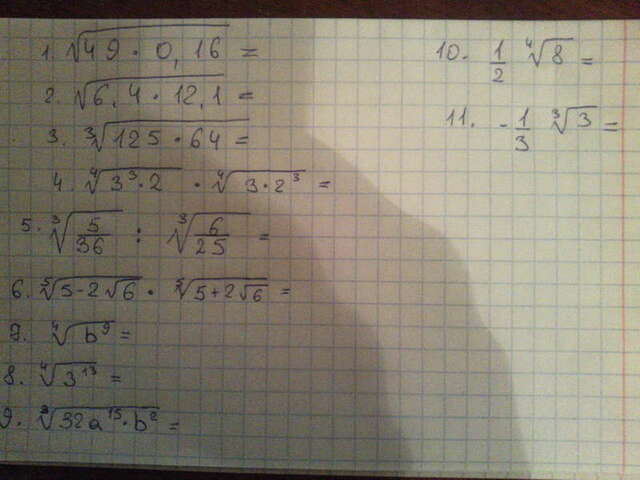 1. √49 · 0,16 =
2. √6,4 · 12,1 =
3. ∛125 · 64 =
4. ∜3³ · 2 · ∜3 · 2³ =
5. ∛5/36 : ∛6/25 =
6. ⁵√5 - 2√6 · ⁵√5 + 2√6 =
7. ∜b⁹ =
8. ∜3¹³ =
9. ∛32a¹⁵ · b² =
10. 1/2 ∜8 =
11. - 1/3 ∛3 =